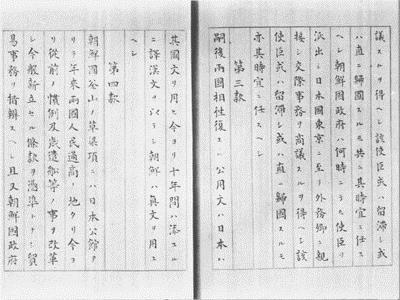 議スルヲ得ヘシ該使臣或ハ留滞シ或
ハ直ニ歸國スルモ共ニ其時宜ニ任ス
ヘシ朝鮮國政府ハ何時ニテモ使臣ヲ
派出シ日本國東京ニ至リ外務卿ニ親
接シ交際事務ヲ商議スルヲ得ヘシ該
使臣或ハ留滞シ或ハ直ニ歸國スルモ
亦其時宜ニ任スヘシ
第三款
嗣後兩國相往復スル公用文ハ日本ハ
其國文ヲ用ヒ今ヨリ十年間ハ添フルニ
譯漢文ヲ以テシ朝鮮ハ真文ヲ用ユ
ヘシ
第四款
朝鮮國釜山ノ草梁項ニハ日本公館ア
リテ年來兩國人民通商ノ地タリ今ヨ
リ從前ノ慣例及歳遣船等ノ事ヲ改革
シ今般新立セル條款ヲ憑準トナシ貿
易事務ヲ措辨スヘシ且又朝鮮國政府